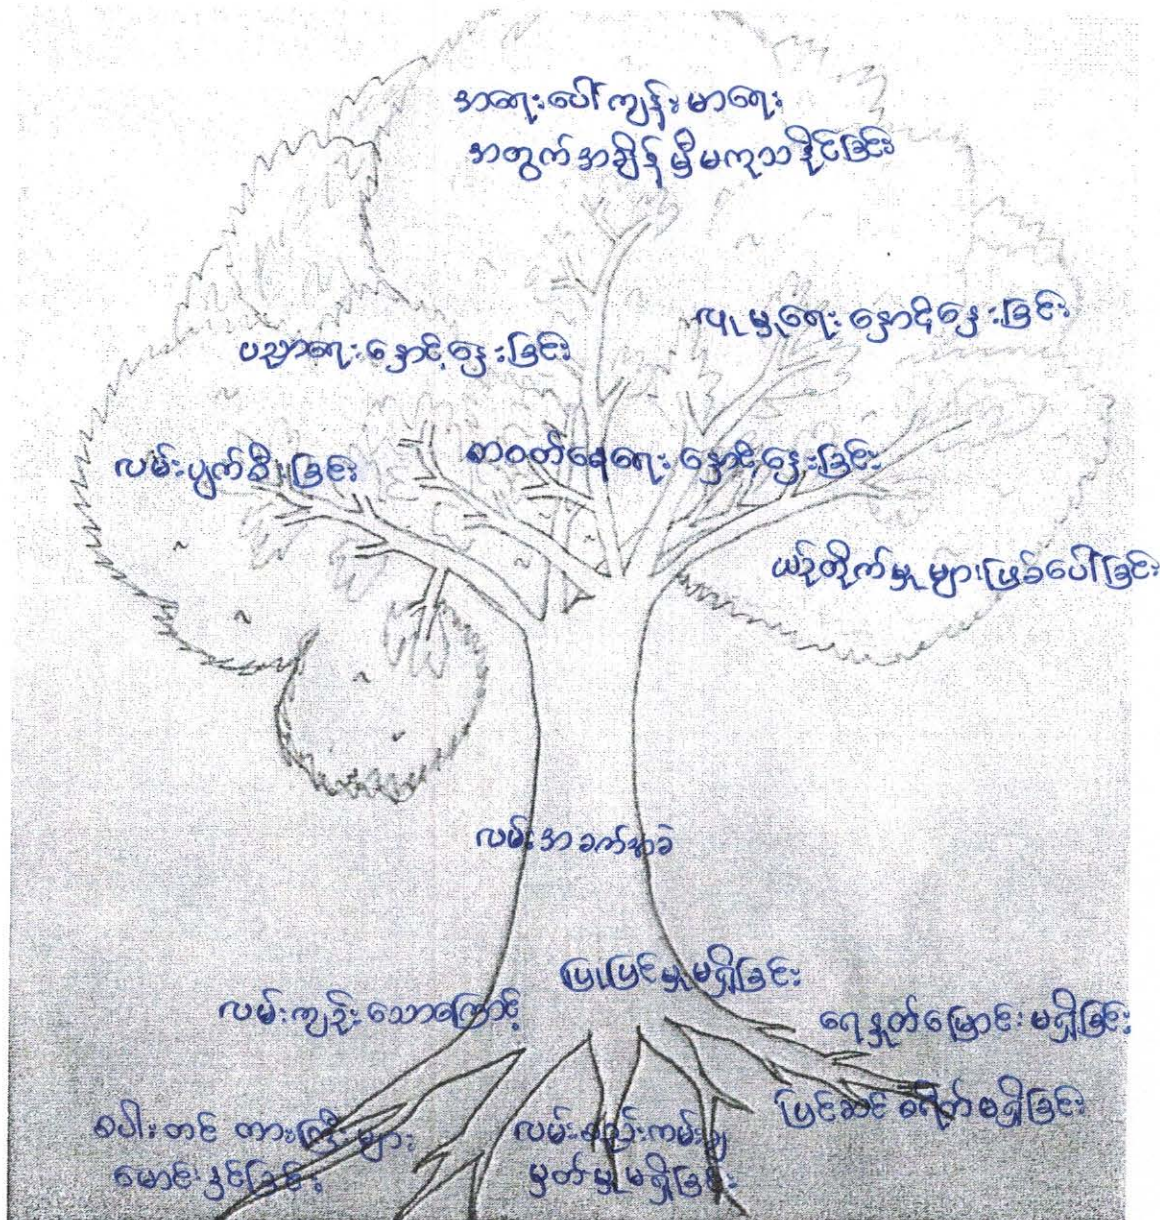 အရေးပေါ်ကျန်းမာရေး
အတွက်အချိန်မှီမကုသနိုင်ခြင်း
လူမှုရေးနှောင့်နှေးခြင်း
ပညာရေးနှောင့်နှေးခြင်း
လမ်းပျက်စီးခြင်း
စာဝတ်နေရေးနှောင့်နှေးခြင်း
ယဉ်တိုက်မှုများဖြစ်ပေါ်ခြင်း
လမ်းအခက်အခဲ
ပြုပြင်မှုမရှိခြင်း
လမ်းကျဉ်းသောကြောင့်
ရေနှုတ်မြောင်းမရှိခြင်း
ပြင်ဆင်စရိတ်မရှိခြင်း
စပါးတင်ကားကြီးများ
မောင်းနှင်ခြင်း
လမ်းစည်းကမ်းချ
မှတ်မှုမရှိခြင်း